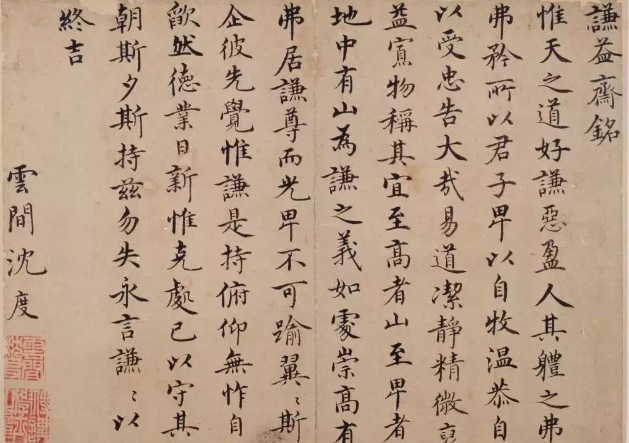 謙益齋銘
惟天之道好謙惡盈人其軆之弗
弗矜所以君子卑以自牧溫恭自
以受忠告大哉易道潔靜精微
益寡物稱其宜至高者山至卑者
地中有山為謙之義如處崇高有
弗居謙尊而光卑不可踰翼〻斯
企彼先覺惟謙是持俯仰無怍自
欿然德業日新惟克處己以守其
朝斯夕斯持茲勿失永言謙〻以
終吉
雲間沈度